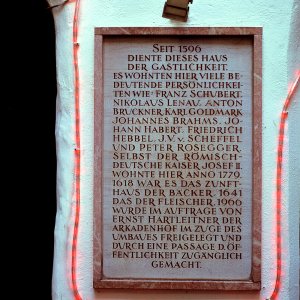 SEIT 1596
DIENTE DIESES HAUS
DER GASTLICHKEIT.
ES WOHNTEN HIER VIELE BE-
DEUTENDE PERSÖNLICHKEI-
TEN WIE: FRANZ SCHUBERT,
NIKOLAUS LENAU, ANTON
BRUCKNER, KARL GOLDMARK,
JOHANNES BRAHMS, JO-
HANN HABERT, FRIEDRICH
HEBBEL, J.V. v. SCHEFFEL
UND PETER ROSEGGER.
SELBST DER RÖMISCH-
DEUTSCHE KAISER JOSEF II.
WOHNTE HIER ANNO 1779.
1618 WAR ES DAS ZUNFT-
HAUS DER BÄCKER, 1641
DAS DER FLEISCHER. 1966
WURDE IM AUFTRAGE VON
ERNST HARTLEITNER DER
ARKADENHOF IM ZUGE DES
UMBAUES FREIGELEGT UND
DURCH EINE PASSAGE D. ÖF-
FENTLICHKEIT ZUGÄNGLICH
GEMACHT.